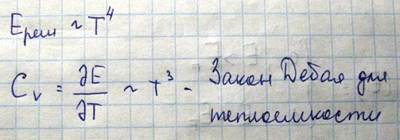 Eреш ~ T⁴
Cᵥ = ∂E/∂T ~ T³ - Закон Дебая для
теплоемкости